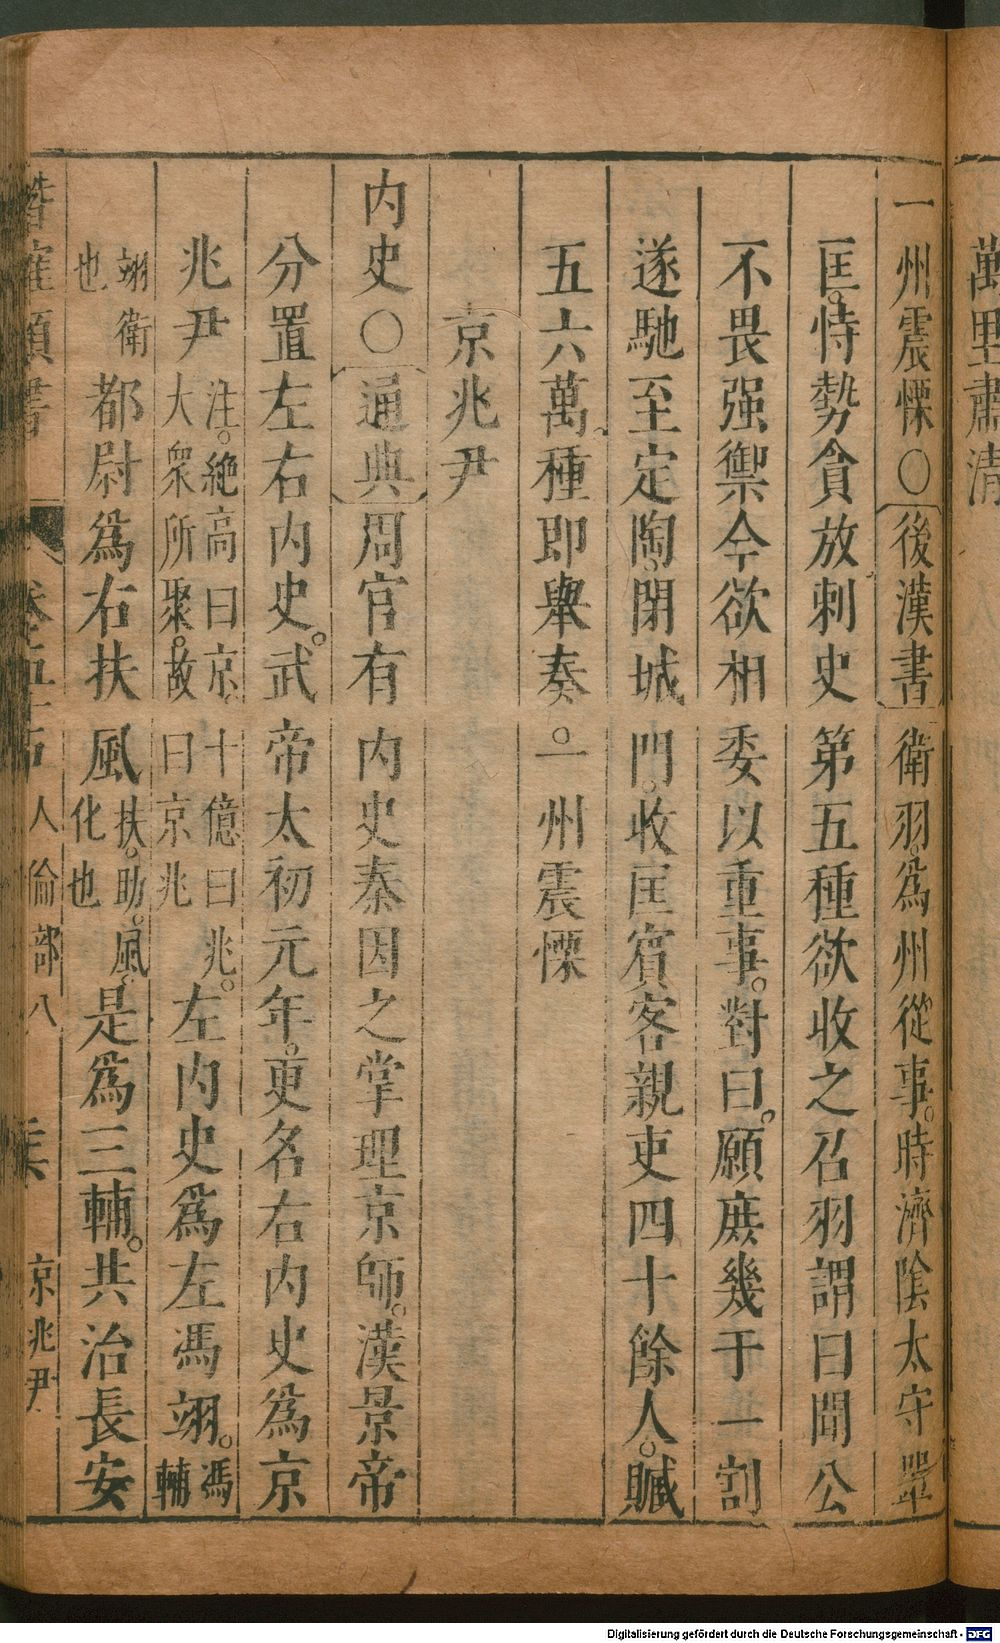 萬里肅清
一州震慄〇後漢書衛羽爲州從事時濟陰太守單
匡恃勢貪放刺史第五種欲收之召羽謂曰聞公
不畏强禦今欲相委以重事對曰願庶幾于一割
遂馳至定陶閉城門收匡賓客親吏四十餘人贓
五六萬種即舉奏一州震慄
京兆尹
内史〇通典周官有内史秦因之掌理京師漢景帝
分置左右内史武帝太初元年更名右内史爲京
兆尹注絶高曰京十億曰兆大衆所聚故曰京兆左内史爲左馮翊馮輔
翊衛也都尉爲右扶風扶助風化也是爲三輔共治長安
潛確類書 卷五十 人倫部八 京兆尹
Digitalisierung gefördert durch die Deutsche Forschungsgemeinschaft - DFG